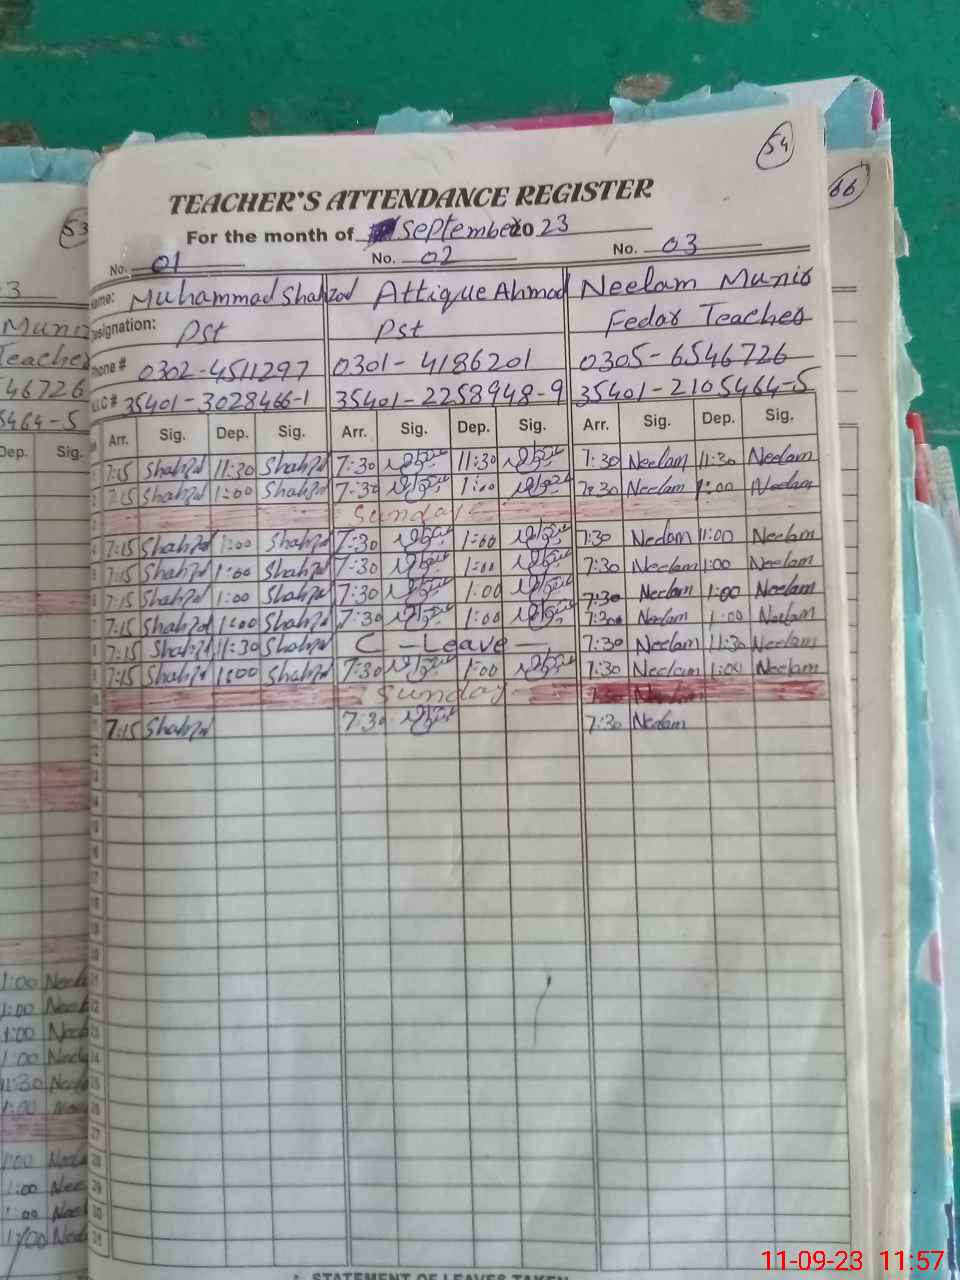 54
TEACHER'S ATTENDANCE REGISTER
For the month of September 2023
No. 01 No. 02 No. 03
Name: Muhammad Shahzad Attique Ahmad Neelam Munir
Designation: Pst Pst Fedar Teacher
Phone # 0302-4511297 0301-4186201 0305-6546726
N.I.C # 35401-3028466-1 35401-2258948-9 35401-2105464-5
Arr. Sig. Dep. Sig. Arr. Sig. Dep. Sig. Arr. Sig. Dep. Sig.
1 7:15 Shahzd 11:30 Shahzd 7:30 11:30 7:30 Neelam 11:30 Neelam
2 7:15 Shahzd 1:00 Shahzd 7:30 1:00 7:30 Neelam 1:00 Neelam
3 Sunday
4 7:15 Shahzd 1:00 Shahzd 7:30 1:00 7:30 Neelam 1:00 Neelam
5 7:15 Shahzd 1:00 Shahzd 7:30 1:00 7:30 Neelam 1:00 Neelam
6 7:15 Shahzd 1:00 Shahzd 7:30 1:00 7:30 Neelam 1:00 Neelam
7 7:15 Shahzd 1:00 Shahzd 7:30 1:00 7:30 Neelam 1:00 Neelam
8 7:15 Shahzd 11:30 Shahzd C - Leave - 7:30 Neelam 11:30 Neelam
9 7:15 Shahzd 1:00 Shahzd 7:30 1:00 7:30 Neelam 1:00 Neelam
Sunday
11 7:15 Shahzd 7:30 7:30 Neelam
12
13
14
15
16
17
18
19
20
21
22
23
24
25
26
27
28
29
30
31
STATEMENT OF LEAVES TAKEN
53
3
Teacher
46726
5464-5
Dep. Sig.
1:00
1:00
1:00
1:00
11:30
1:00
1:00
1:00
1:00
1:00
66
11-09-23 11:57